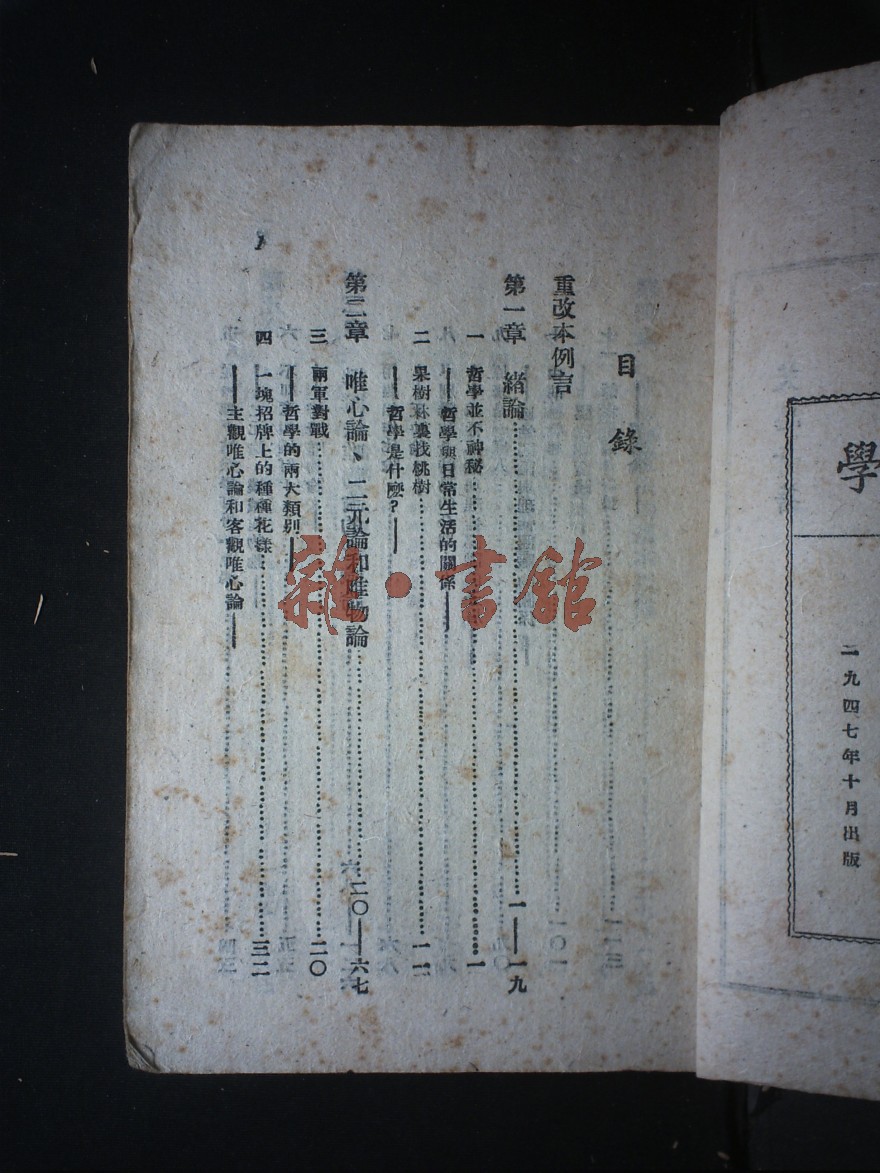 學
二九四七年十月出版
目錄
重改本例言
第一章 緒論……一——一九
一 哲學並不神秘……一
——哲學與日常生活的關係——
二 果樹林裏找桃樹……一二
——哲學是什麼?——
第二章 唯心論、二元論和唯物論……二〇——六七
三 兩軍對戰……二〇
——哲學的兩大類別——
四 一塊招牌上的種種花樣……三二
——主觀唯心論和客觀唯心論——
1
雜·書館